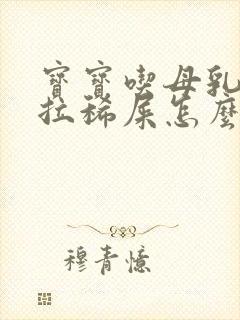 寶寶喫母乳
拉稀屎怎麼
穆青憶